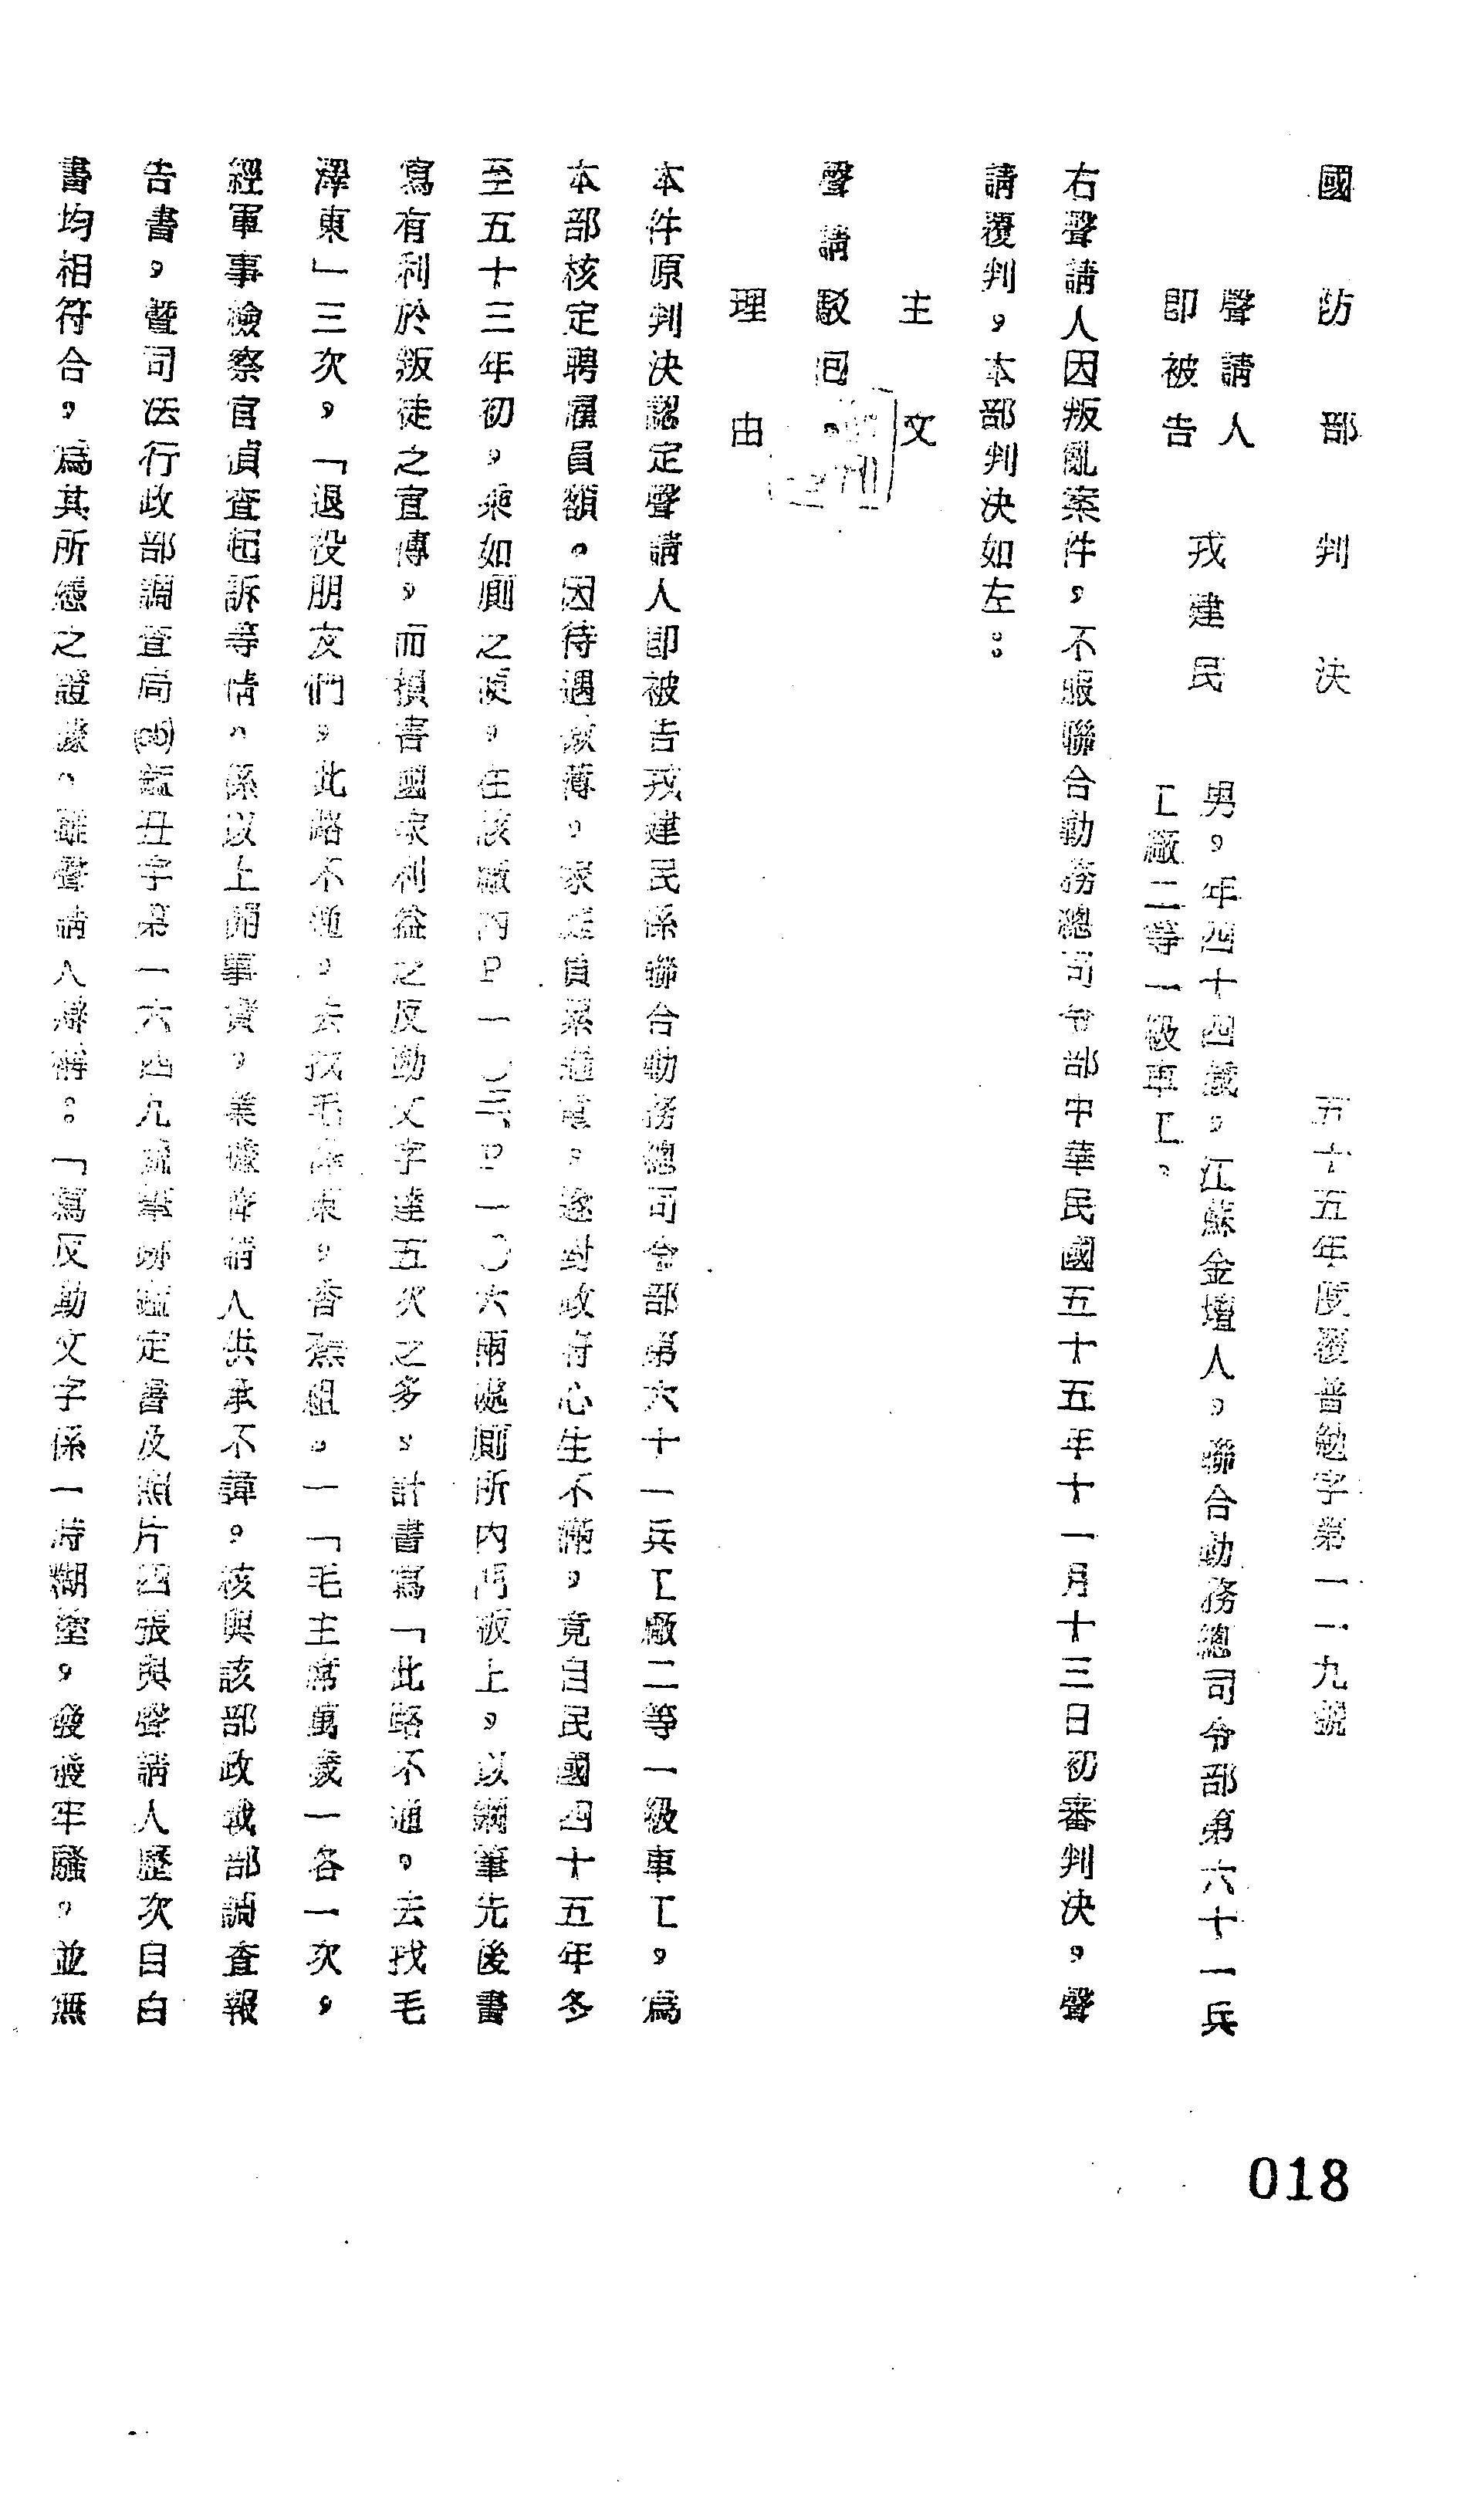 國防部判決
五十五年度覆普勉字第一一九號
聲請人
即被告
戎建民
男，年四十四歲，江蘇金壇人，聯合勤務總司令部第六十一兵
工廠二等一級車工。
右聲請人因叛亂案件，不服聯合勤務總司令部中華民國五十五年十一月十三日初審判決，聲
請覆判，本部判決如左：
主文
聲請駁回。
理由
本件原判決認定聲請人即被告戎建民係聯合勤務總司令部第六十一兵工廠二等一級車工，為
本部核定聘雇員額。因待遇菲薄，家庭負累過重，遂對政府心生不滿，竟自民國四十五年冬
至五十三年初，乘如廁之便，在該廠內P一〇三、P一〇六兩處廁所內門板上，以鋼筆先後書
寫有利於叛徒之宣傳，而損害國家利益之反動文字達五次之多，計書寫「此路不通，去找毛
澤東」三次，「退役朋友們，此路不通，去找毛澤東，香蕉組。」「毛主席萬歲」各一次，
經軍事檢察官偵查起訴等情。係以上開事實，業據聲請人供承不諱。核與該部政戰部調查報
告書，暨司法行政部調查局(55)鑑丑字第一六四九號筆跡鑑定書及照片四張與聲請人歷次自白
書均相符合，為其所憑之證據。雖聲請人辯稱：「寫反動文字係一時糊塗，發發牢騷，並無
018